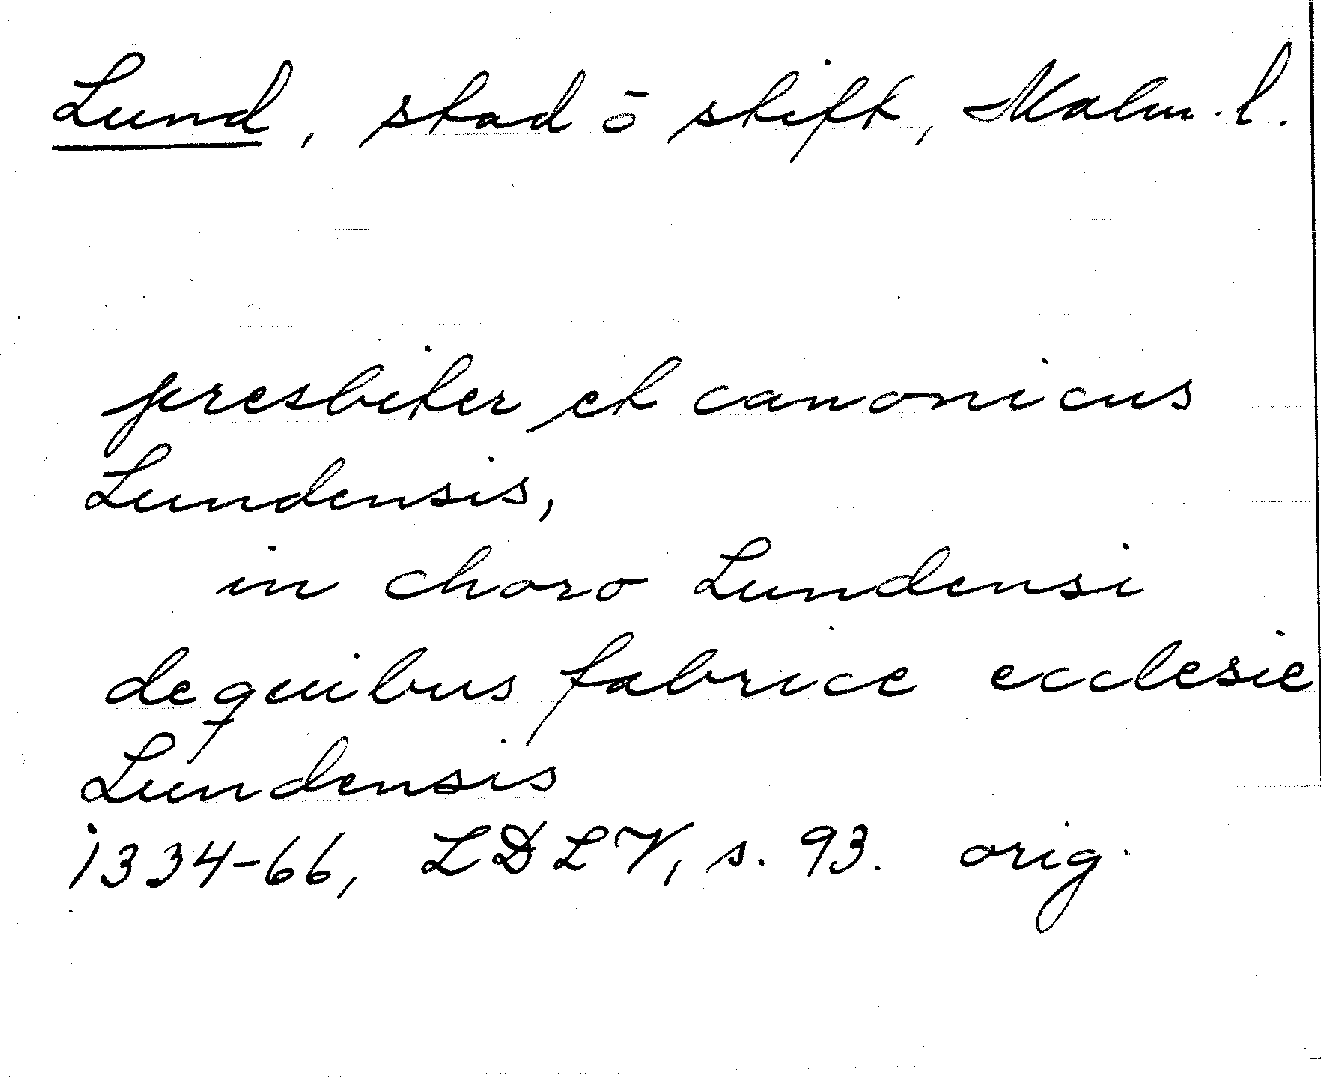 Lund, stad ō stift, Malm. l.
presbiter et canonicus
Lundensis,
in choro Lundensi
de quibus fabrice ecclesie
Lundensis
1334-66, LDLV, s. 93. orig.